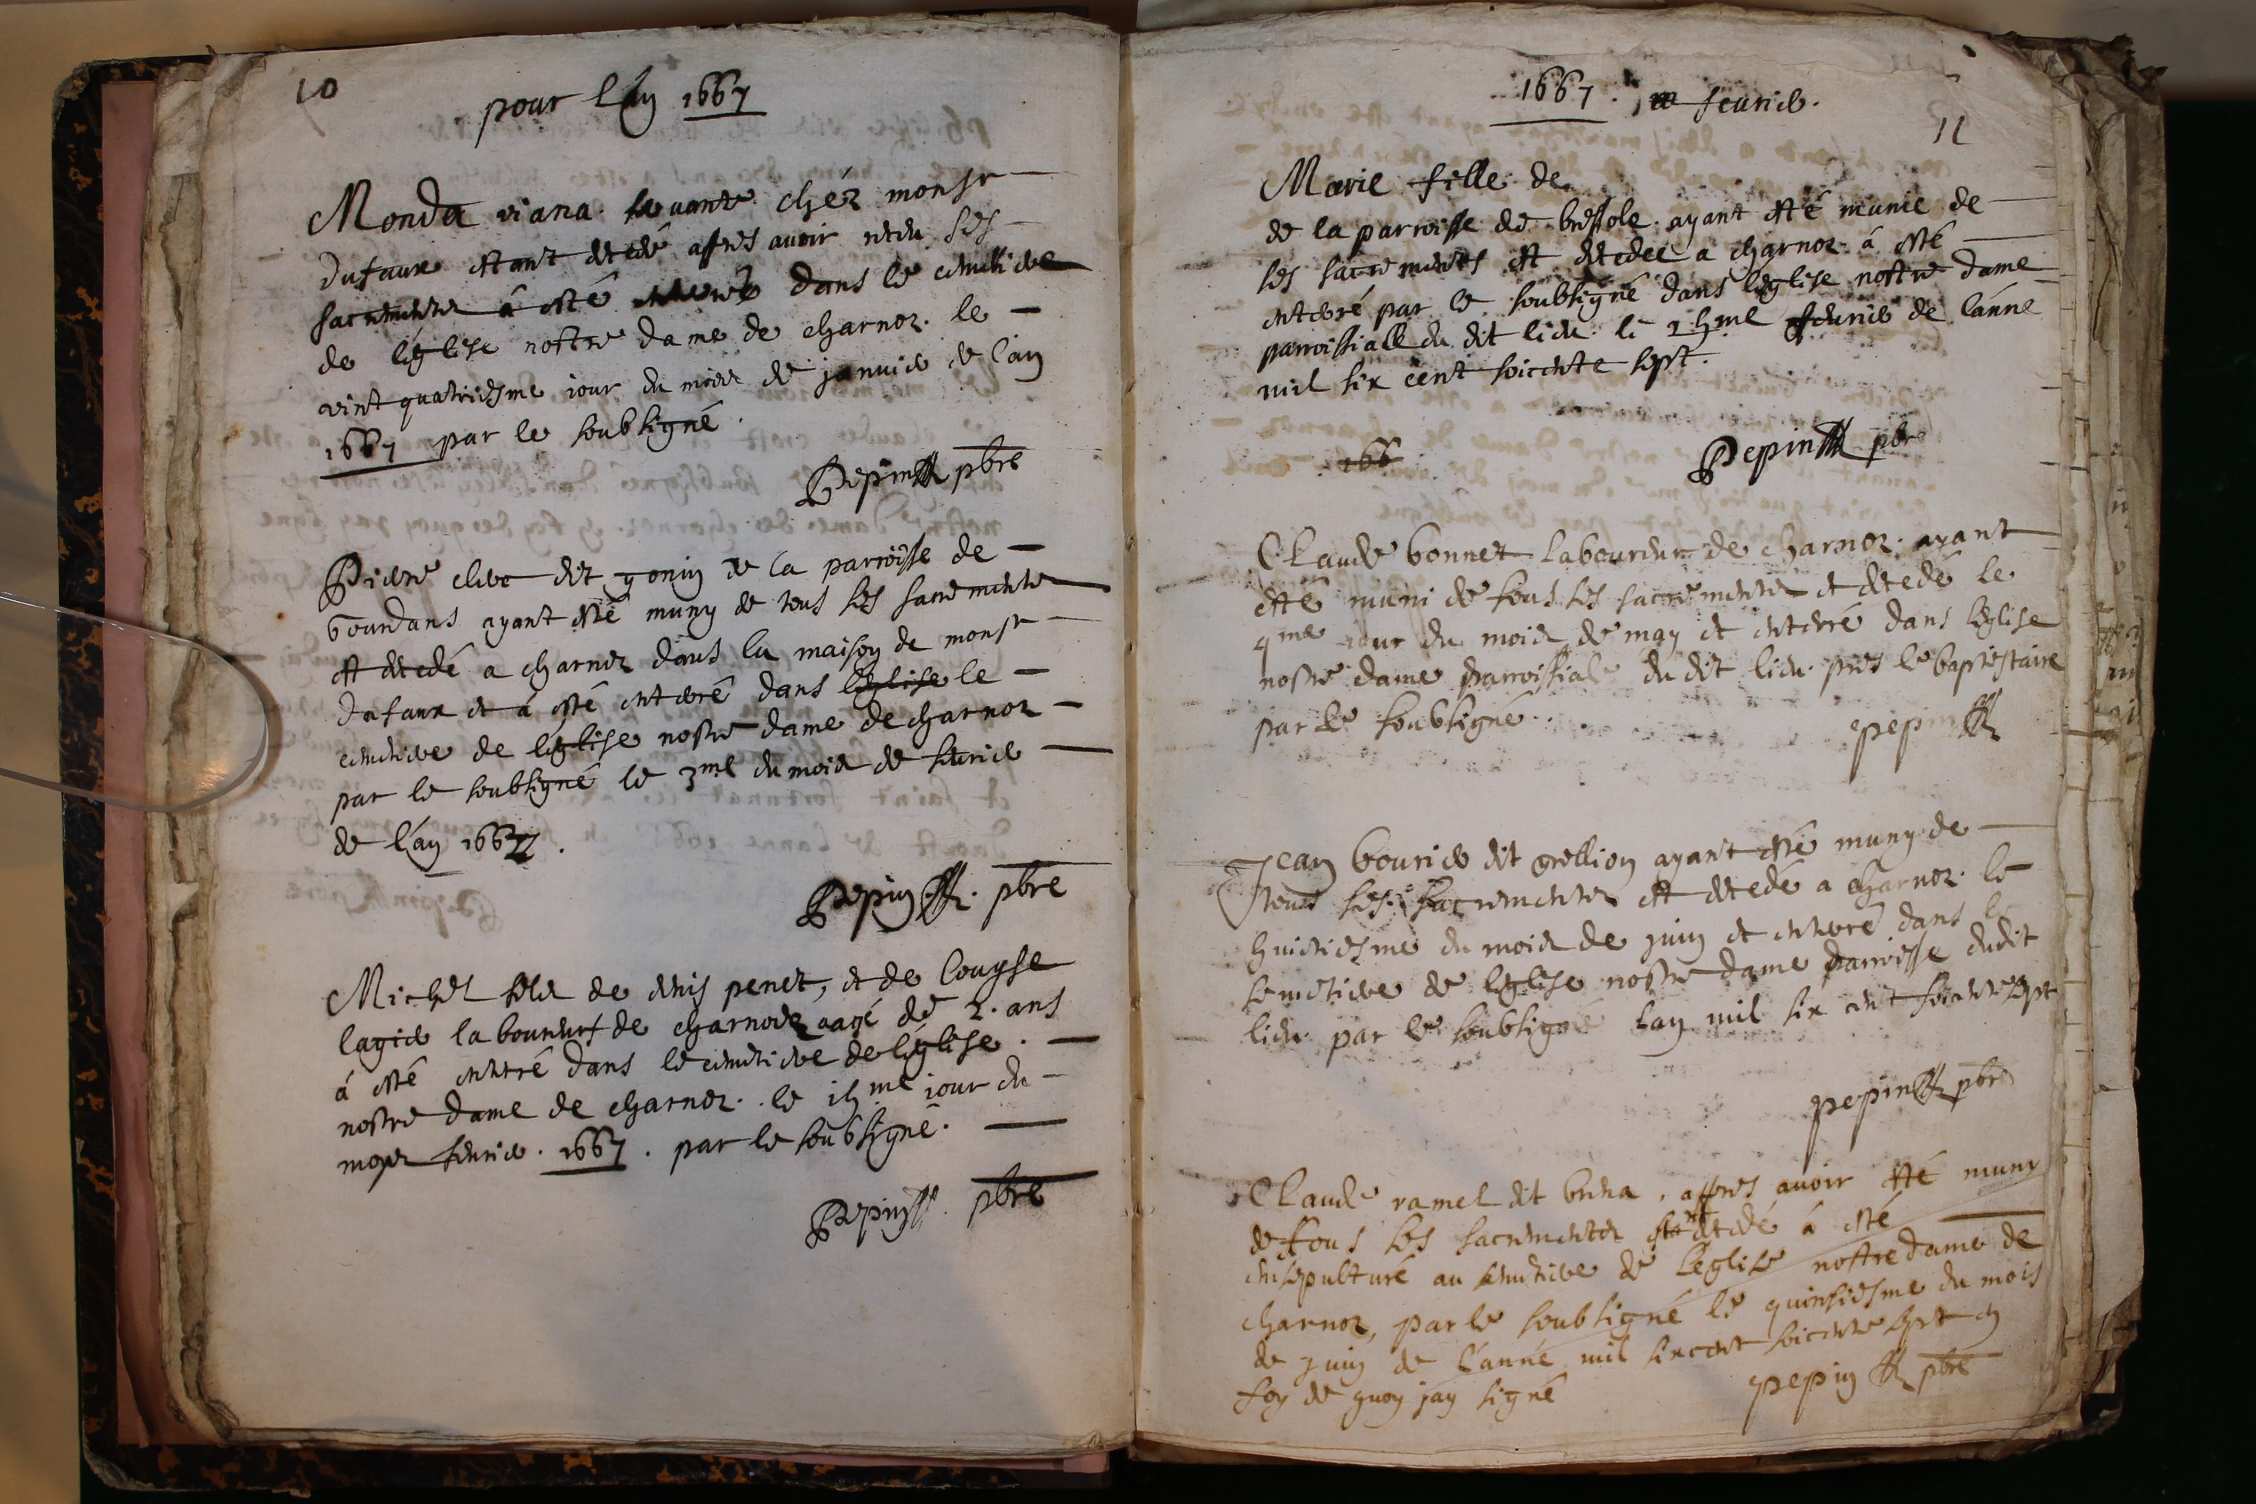 10
pour l'an 1667
Monda viana servante chéz monsr
dufaux estant decedé apres avoir receu ses
sacrements à esté enterré dans le cimetiere
de l'église nostre dame de charnoz. le
vint quatriesme iour du mois de januier de l'an
1667 par le soubsigné.
Pepin pbre
Pierre clerc dit gonin de la parroisse de
bourdans ayant esté muny de tous ses sacrements
est decedé a charnoz dans la maison de monsr
dufaux et à esté enterré dans l'eglise le
cimetiere de l'église nostre dame de charnoz
par le soubsigné le 3me du mois de feurier
de l'an 1667.
Pepin. pbre
Michel fils de denis penet, et de louyse
lagier laboureur de charnoz aagé de 2. ans
à esté enterré dans le cimetiere de l'église.
nostre dame de charnoz. le me iour du
moys feurier. 1667. par le soubsigné.
Pepin. pbre
1667. feurier.
11
Marie fille de
de la parroisse de bressole. ayant esté munie de
ses sacrements est decedée a charnoz à esté
enterré par le soubsigné dans l'eglise nostre dame
parroissialle du dit lieu le me feurier de l'anne
mil six cent soicente sept.
166
Pepin pbre
Claude bonnet laboureur de charnoz. ayant
esté muni de tous ses sacrements et decedé le
4me iour du mois de may et enterré dans l'eglise
nostre dame parroissiale du dit lieu pres le baptistaire
par le soubsigné.
pepin
Jean bourier dit grellion ayant esté muny de
tous ses sacrements est decedé a charnoz. le
huictiesme du mois de juin et enterré dans le
semetiere de l'eglise nostre dame parroisse dudit
lieu par le soubsigné l'an mil six cent soicente sept
pepin pbre
Claude ramel dit, apres avoir esté muny
de tous ses sacrements estant decedé à esté
ensepulturé au semetiere de l'eglise nostre dame de
charnoz, par le soubsigné le quinsiesme du mois
de juin de l'année mil six cent soicente sept en
foy de quoy jay signé
pepin pbre